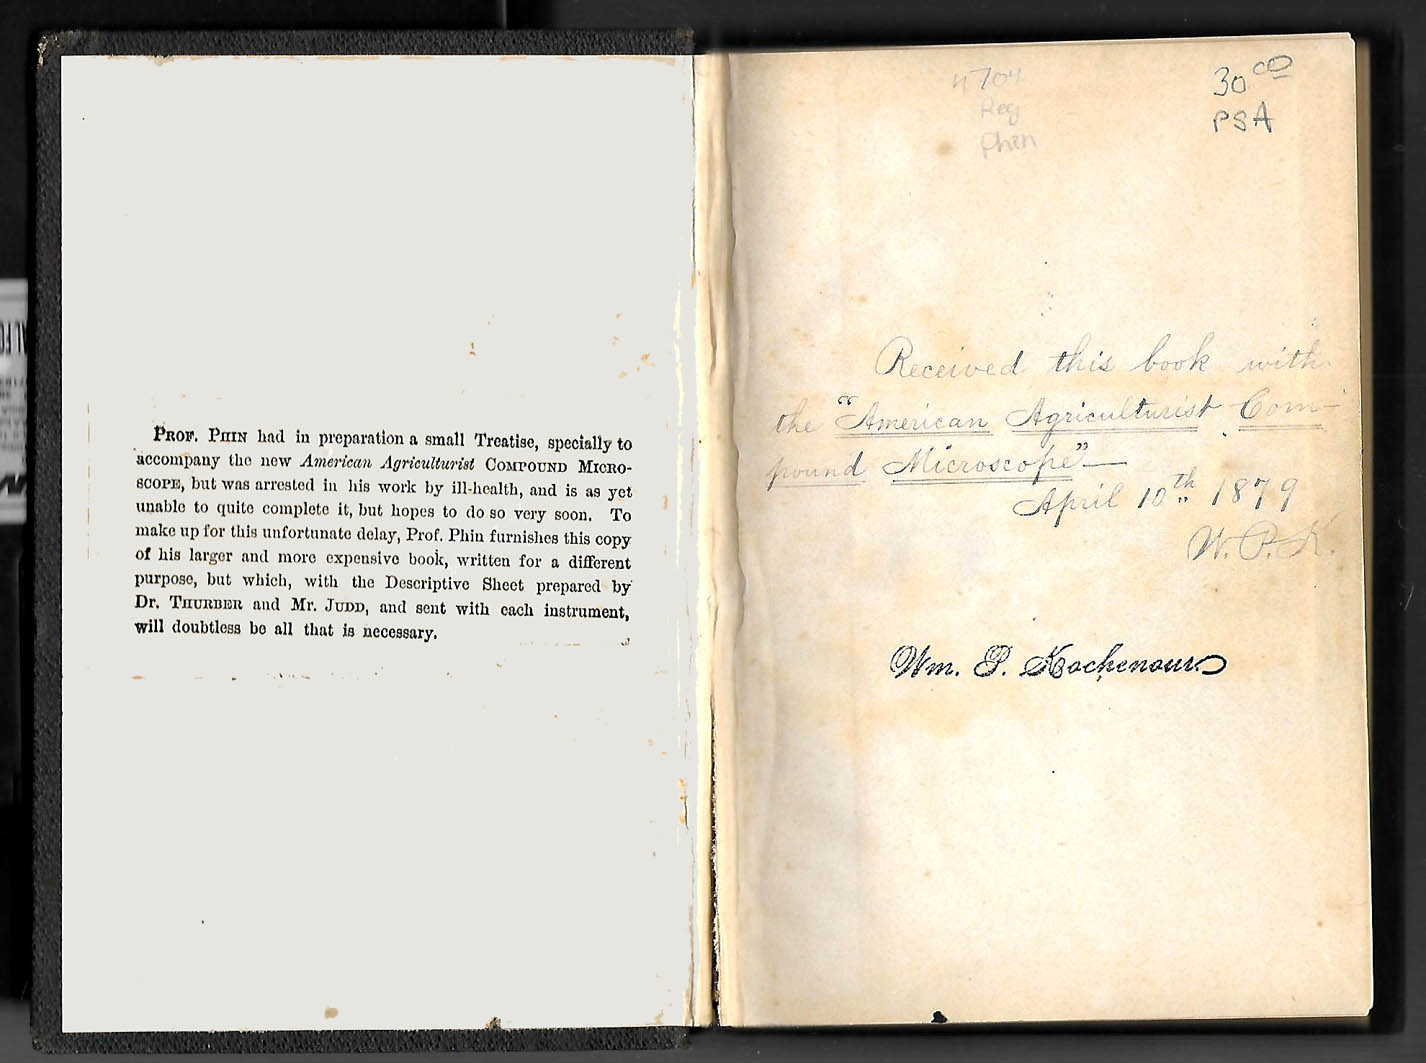 PROF. PHIN had in preparation a small Treatise, specially to
accompany the new American Agriculturist COMPOUND MICRO-
SCOPE, but was arrested in his work by ill-health, and is as yet
unable to quite complete it, but hopes to do so very soon. To
make up for this unfortunate delay, Prof. Phin furnishes this copy
of his larger and more expensive book, written for a different
purpose, but which, with the Descriptive Sheet prepared by
Dr. THURBER and Mr. JUDD, and sent with each instrument,
will doubtless be all that is necessary.
4704
Phin
30 00
PSA
Received this book with
the "American Agriculturist Com-
pound Microscope"—
April 10th 1879
W. P. K.
Wm. P. Kochenour